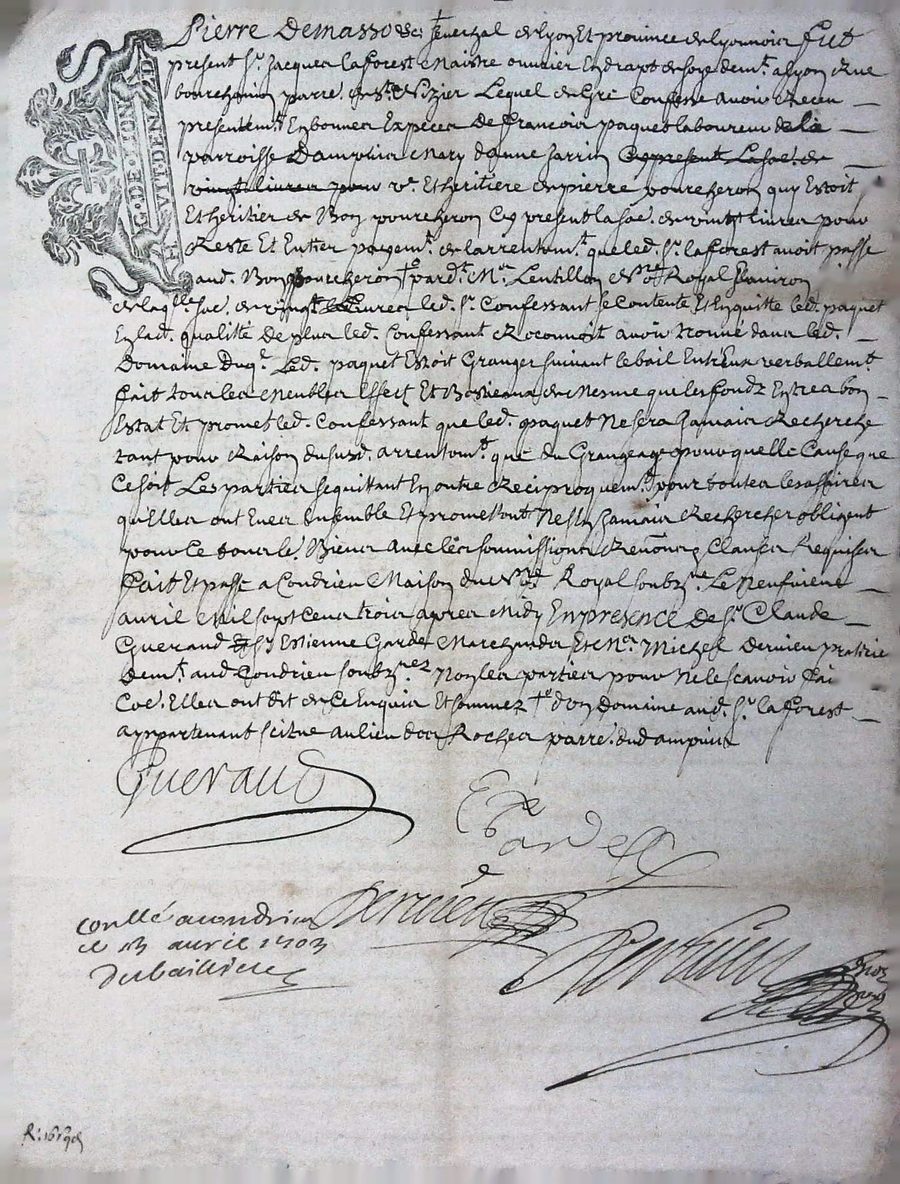 G. DE LION
HUIT DEN
Pierre Demasso &c. senechal de lyon Et province de lyonnois fut
present Sr. Jacques lafforest Maistre ouvrier En drapt de soye demt. a lyon Rue
parre. de st. Nizier Lequel de Gré Confesse avoir Receu
presentemt. En bonnes Especes de francois paquet laboureur de la
parroisse Dampuis Mary danne Jarrin Cy present La soe. de
vingt livres pour ve. Et heritiere de pierre poucheron quy Estoit
Et heritier de Bon poucheron Cy present la soe. de vingt livres pour
Reste Et Entier payemt. de larrentemt. que led. Sr. lafforest avoit passe
aud. Bon poucheron † par dt. Me. Lentillon Royal
de laqlle. soe. de vingt livres led. Sr. Confessant se Contente Et Enquitte led. paquet
En lad. qualitte De plus led. Confessant Reconnoit avoir trouvé dans led.
Domaine Duql. Led. paquet Estoit Granger suivant le bail Entreux verballemt.
fait tous les Meubles Effects Et Bestieaux de Mesme que les fondz En tres bon
Estat Et promet led. Confessant que led. paquet Ne sera Jamais Recherche
tant pour Raison du susd. arrentemt. que du Grangeage pour quelle Cause que
Ce soit Les parties se quittant En outre Reciproquemt. pour toutes les affaires
qu'Elles ont Eues Ensemble Et promettent Ne sen Jamais Rechercher obligent
pour Ce tous les. Biens avec les soummissions Renong. Clauses Requises
fait Et passé a Condrieu Maison du Nore. Royal soubzne. Le Neufvieme
avril Mil sept Cens trois apres Midy En presence De Sr. Claude
Gueraud & Sr. Estienne Garde Marchandz Et Me. Michel Dervieu pratitien
demt. aud. Condrieu soubznez Non les parties pour Ne le scavoir fai
Coe. Elles ont dit de Ce Enquis Et sommez † d'un Domaine aud. Sr. lafforest
appartenant scitue au lieu des Roches parre. dud. ampuis
Gueraud
E Garde
Dervieu
conllé a condrieu
le 13 avril 1703